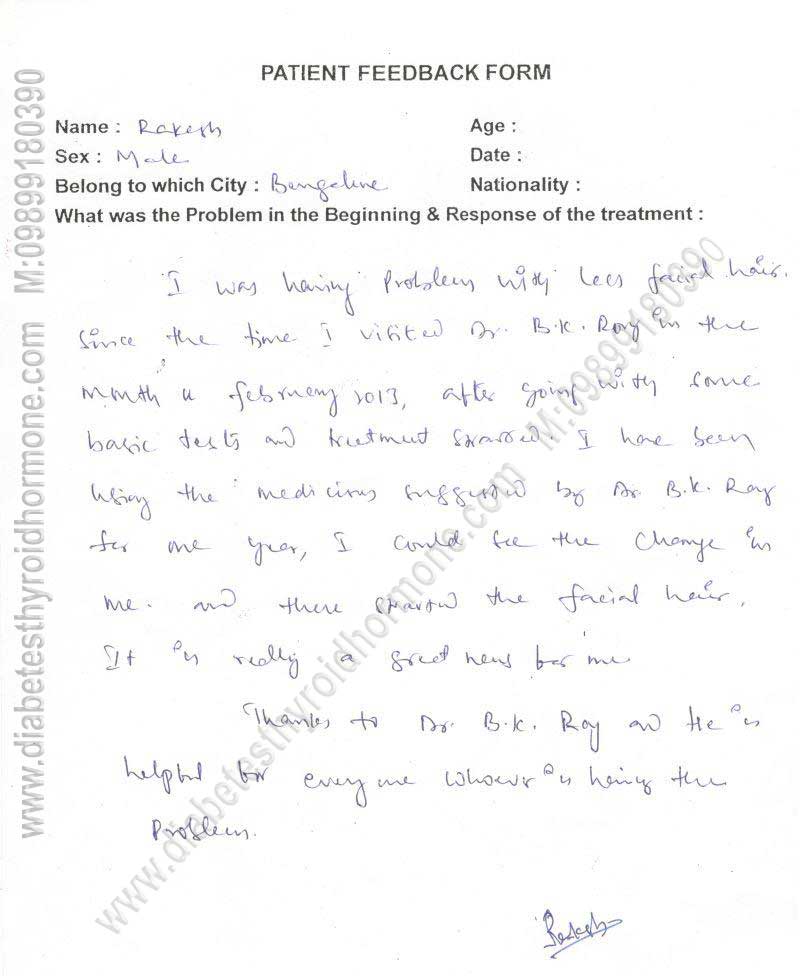 PATIENT FEEDBACK FORM
Name : Rakesh Age :
Sex : Male Date :
Belong to which City : Bangalore Nationality :
What was the Problem in the Beginning & Response of the treatment :
I was having Problem with less facial hair.
Since the time I visited Dr. B.K. Roy in the
month of february 2013, after going with some
basic tests and treatment started. I have been
using the medicines suggested by Dr. B.K. Roy
for one year, I could see the change in
me. and there started the facial hair.
It is really a great news for me
Thanks to Dr. B.K. Roy and He is
helpful for every one whoever is having the
Problem.
Rakesh
www.diabetesthyroidhormone.com M:09899180390
www.diabetesthyroidhormone.com M:09899180390